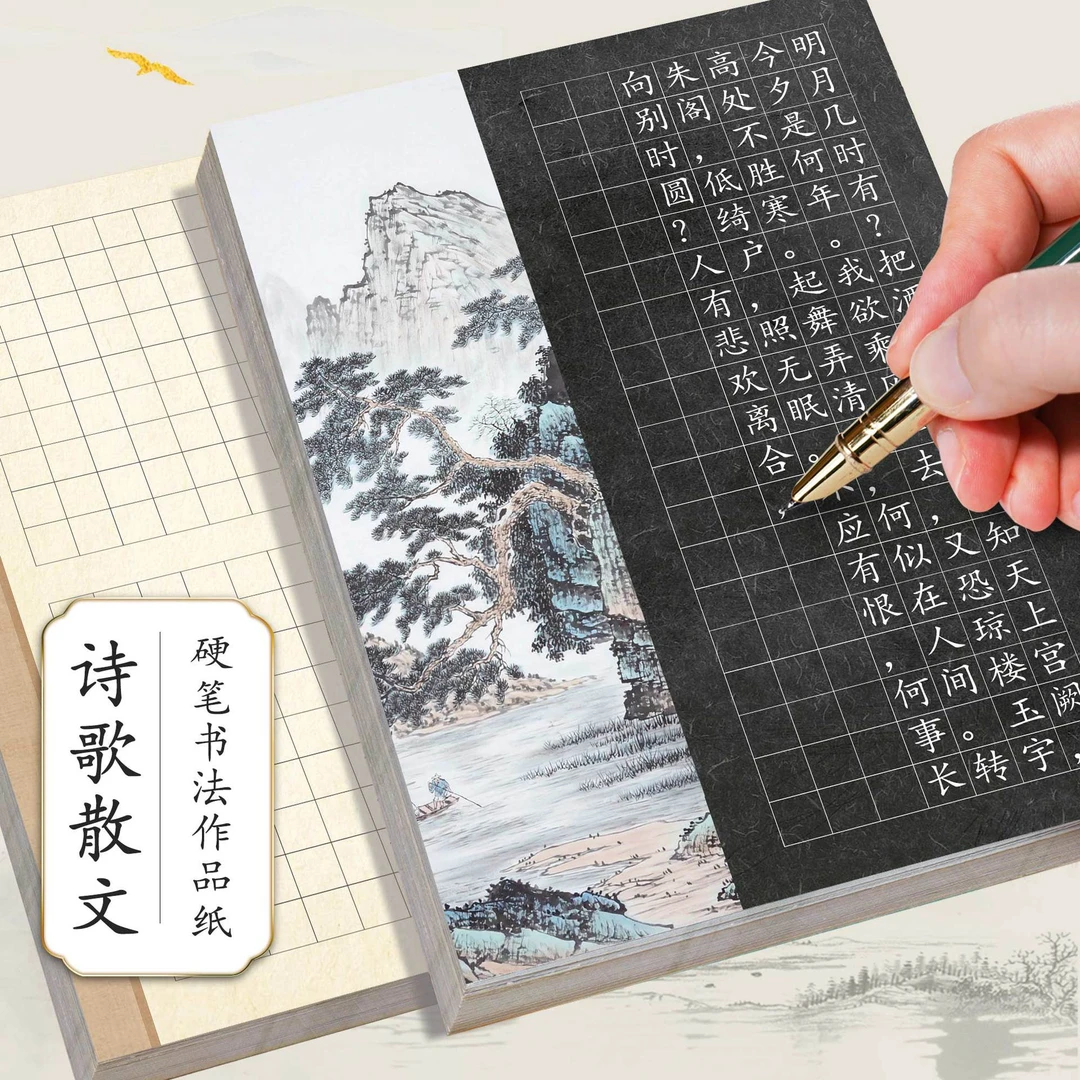 明月几时有？把酒知天上宫阙，
今夕是何年。我欲乘去，又恐琼楼玉宇
高处不胜寒。起舞弄清，何似在人间。转
朱阁，低绮户，照无眠。不应有恨，何事长
向别时圆？人有悲欢离合
硬笔书法作品纸
诗歌散文